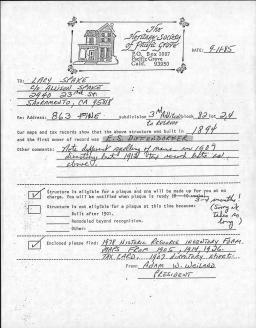 The
Heritage Society
of Pacific Grove
P.O. Box 1007
Pacific Grove
Calif. 93950
DATE: 9-16-85
TO: LARY SPAKE
c/o ALLISON SPAKE
2940 23rd St.
SACRAMENTO, CA 95818
Re: Address: 863 PINE subdivision 3rd Addition block 82 lot 24
Our maps and tax records show that the above structure was built in 1894
and the first owner of record was E. S.
Other comments: Note different spelling of name in 1907
directory but 1912 tax record
above
Structure is eligible for a plaque and one will be made up for you at no
charge. You will be notified when plaque is ready (8-10 weeks). 3-4 months!
(Sorry it takes so long)
Structure is not eligible for a plaque at this time because:
Built after 1901.
Remodeled beyond recognition.
Other:
Enclosed please find: 1978 HISTORIC RESOURCE INVENTORY FORM.
MAPS FROM 1905, 1914, 1926.
TAX CARD. 1907 directory sheet.
From: ADAM W. WEILAND
PRESIDENT